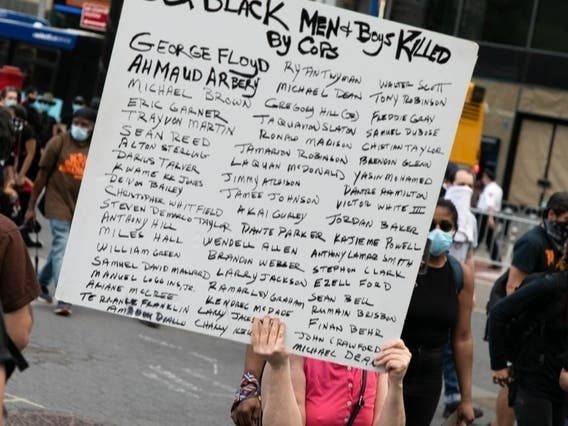 BLACK MEN & BOYS KILLED
BY COPS
GEORGE FLOYD
AHMAUD ARBERY
MICHAEL BROWN
ERIC GARNER
TRAYVON MARTIN
SEAN REED
ALTON STERLING
DARIUS TARVER
KWAME KK JONES
DE'VON BAILEY
CHRISTOPHER WHITFIELD
STEVEN DEMARLO TAYLOR
ANTHONY HILL
MILES HALL
WILLIAM GREEN
SAMUEL DAVID MALLARD
MANUEL LOGGINS, JR.
ARIANE MCCREE
TERRANCE FRANKLIN
AMADOU DIALLO
RYAN TWYMAN
MICHAEL DEAN
GREGORY HILL
TAQUAVION SLATON
RONALD MADISON
JAMARION ROBINSON
LAQUAN MCDONALD
JIMMY ATCHISON
JAMEE JOHNSON
AKAI GURLEY
DANTE PARKER
WENDELL ALLEN
BRANDON WEBBER
LARRY JACKSON
RAMARLEY GRAHAM
KENDREC MCDADE
WALTER SCOTT
TONY ROBINSON
FREDDIE GRAY
SAMUEL DUBOSE
CHRISTIAN TAYLOR
BRENDON GLENN
YASIN MOHAMED
DANTRE HAMILTON
VICTOR WHITE III
JORDAN BAKER
KATJEME POWELL
ANTHONY LAMAR SMITH
STEPHON CLARK
EZELL FORD
SEAN BELL
RUMAIN BRISBON
FINAN BEHR
JOHN CRAWFORD
MICHAEL DEAN